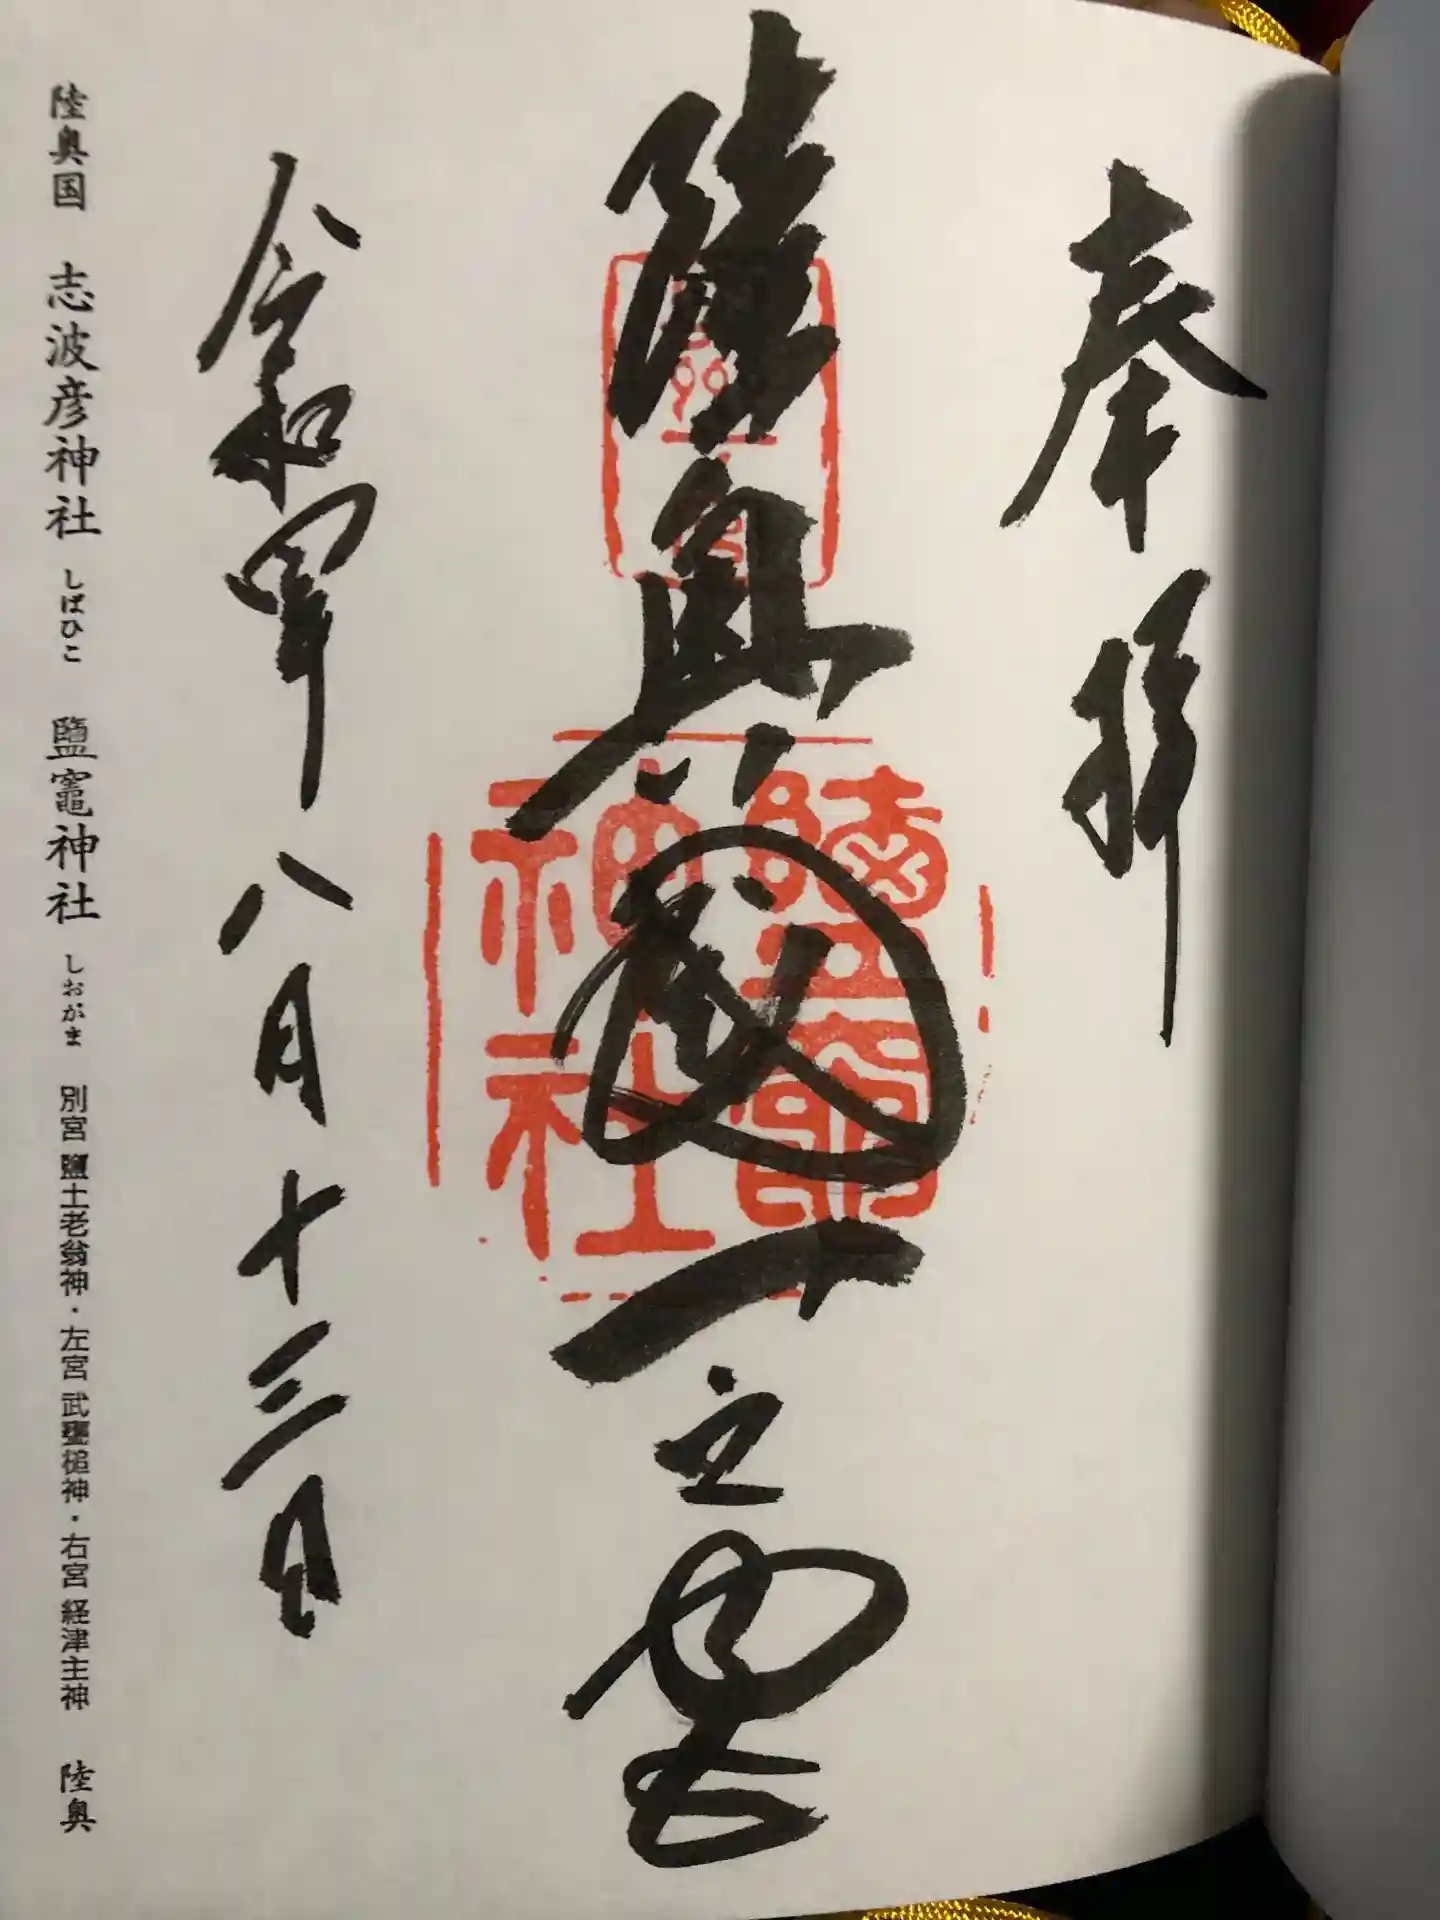 奉拝
陸奥國一之宮
鹽竈神社
令和四年八月十三日
陸奥国 志波彦神社 しばひこ 鹽竈神社 しおがま 別宮 鹽土老翁神・左宮 武甕槌神・右宮 経津主神 陸奥